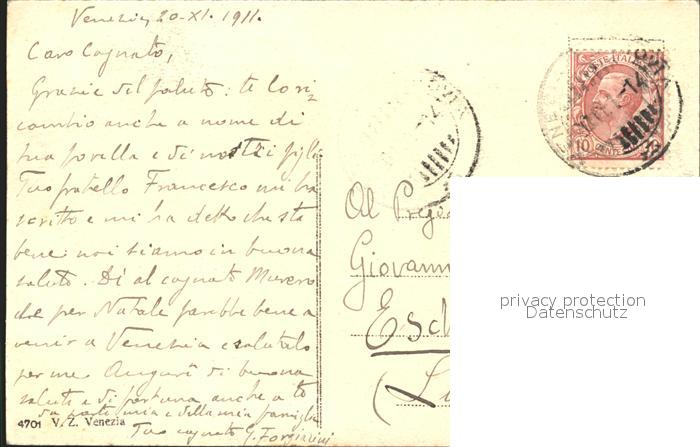 Venezia, 20-XI. 1911.
Caro Cognato,
Grazie del saluto: te lo ri
cambio anche a nome di
tua sorella e di nostri figli
Tuo fratello Francesco mi ha
scritto e mi ha detto che sta
bene: noi siamo in buona
salute. Di al cognato
che per Natale farebbe bene a
venir a Venezia e salutalo
per me. Auguri di buona
salute e di fortuna anche a te
da parte mia e della mia famiglia
Tuo cognato G.
4701 V. Z. Venezia
POSTE ITALIANE
10 CENT. 10
Al Preg
Giovann
Esch
(Lu
privacy protection
Datenschutz